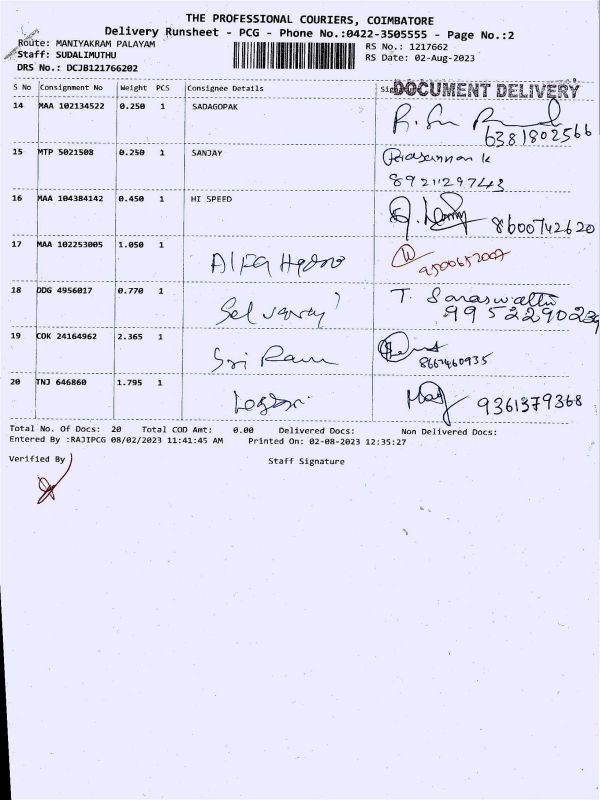 THE PROFESSIONAL COURIERS, COIMBATORE
Delivery Runsheet - PCG - Phone No.:0422-3505555 - Page No.:2
Route: MANIYAKRAM PALAYAM RS No.: 1217662
Staff: SUDALIMUTHU RS Date: 02-Aug-2023
DRS No.: DCJB121766202
DOCUMENT DELIVERY
S No Consignment No Weight PCS Consignee Details
14 MAA 102134522 0.250 1 SADAGOPAK
6381802566
15 MTP 5021508 0.250 1 SANJAY
8921129743
16 MAA 104384142 0.450 1 HI SPEED
8600742620
17 MAA 102253005 1.050 1 Alfa Hydro
9500652007
18 DDG 4956017 0.770 1 T. Saraswathi
9952290239
19 COK 24164962 2.365 1 Sri Ram
8667460935
20 TNJ 646860 1.795 1
9361379368
Total No. Of Docs: 20 Total COD Amt: 0.00 Delivered Docs: Non Delivered Docs:
Entered By :RAJIPCG 08/02/2023 11:41:45 AM Printed On: 02-08-2023 12:35:27
Verified By Staff Signature